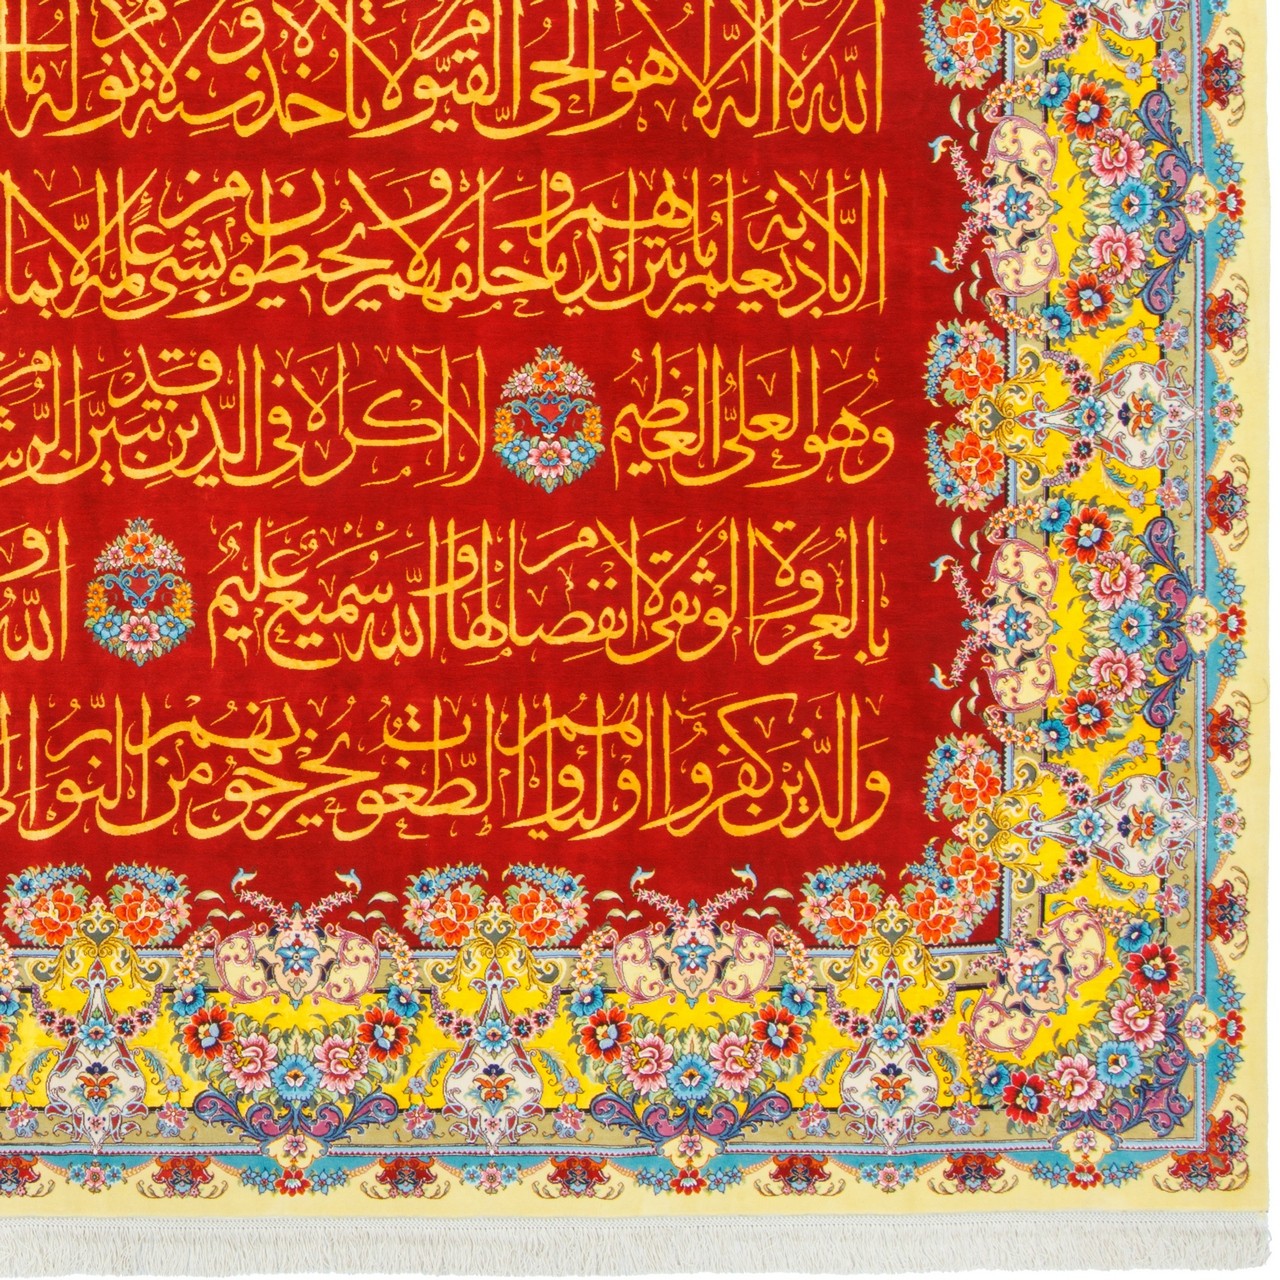 الله لا إله إلا هو الحي القيوم لا تأخذه سنة ولا نوم له ما
إلا بإذنه يعلم ما بين أيديهم وما خلفهم ولا يحيطون بشيء من علمه إلا بما
وهو العلي العظيم لا إكراه في الدين قد تبين الرشد من
بالعروة الوثقى لا انفصام لها والله سميع عليم الله و
والذين كفروا أولياؤهم الطاغوت يخرجونهم من النور إلى